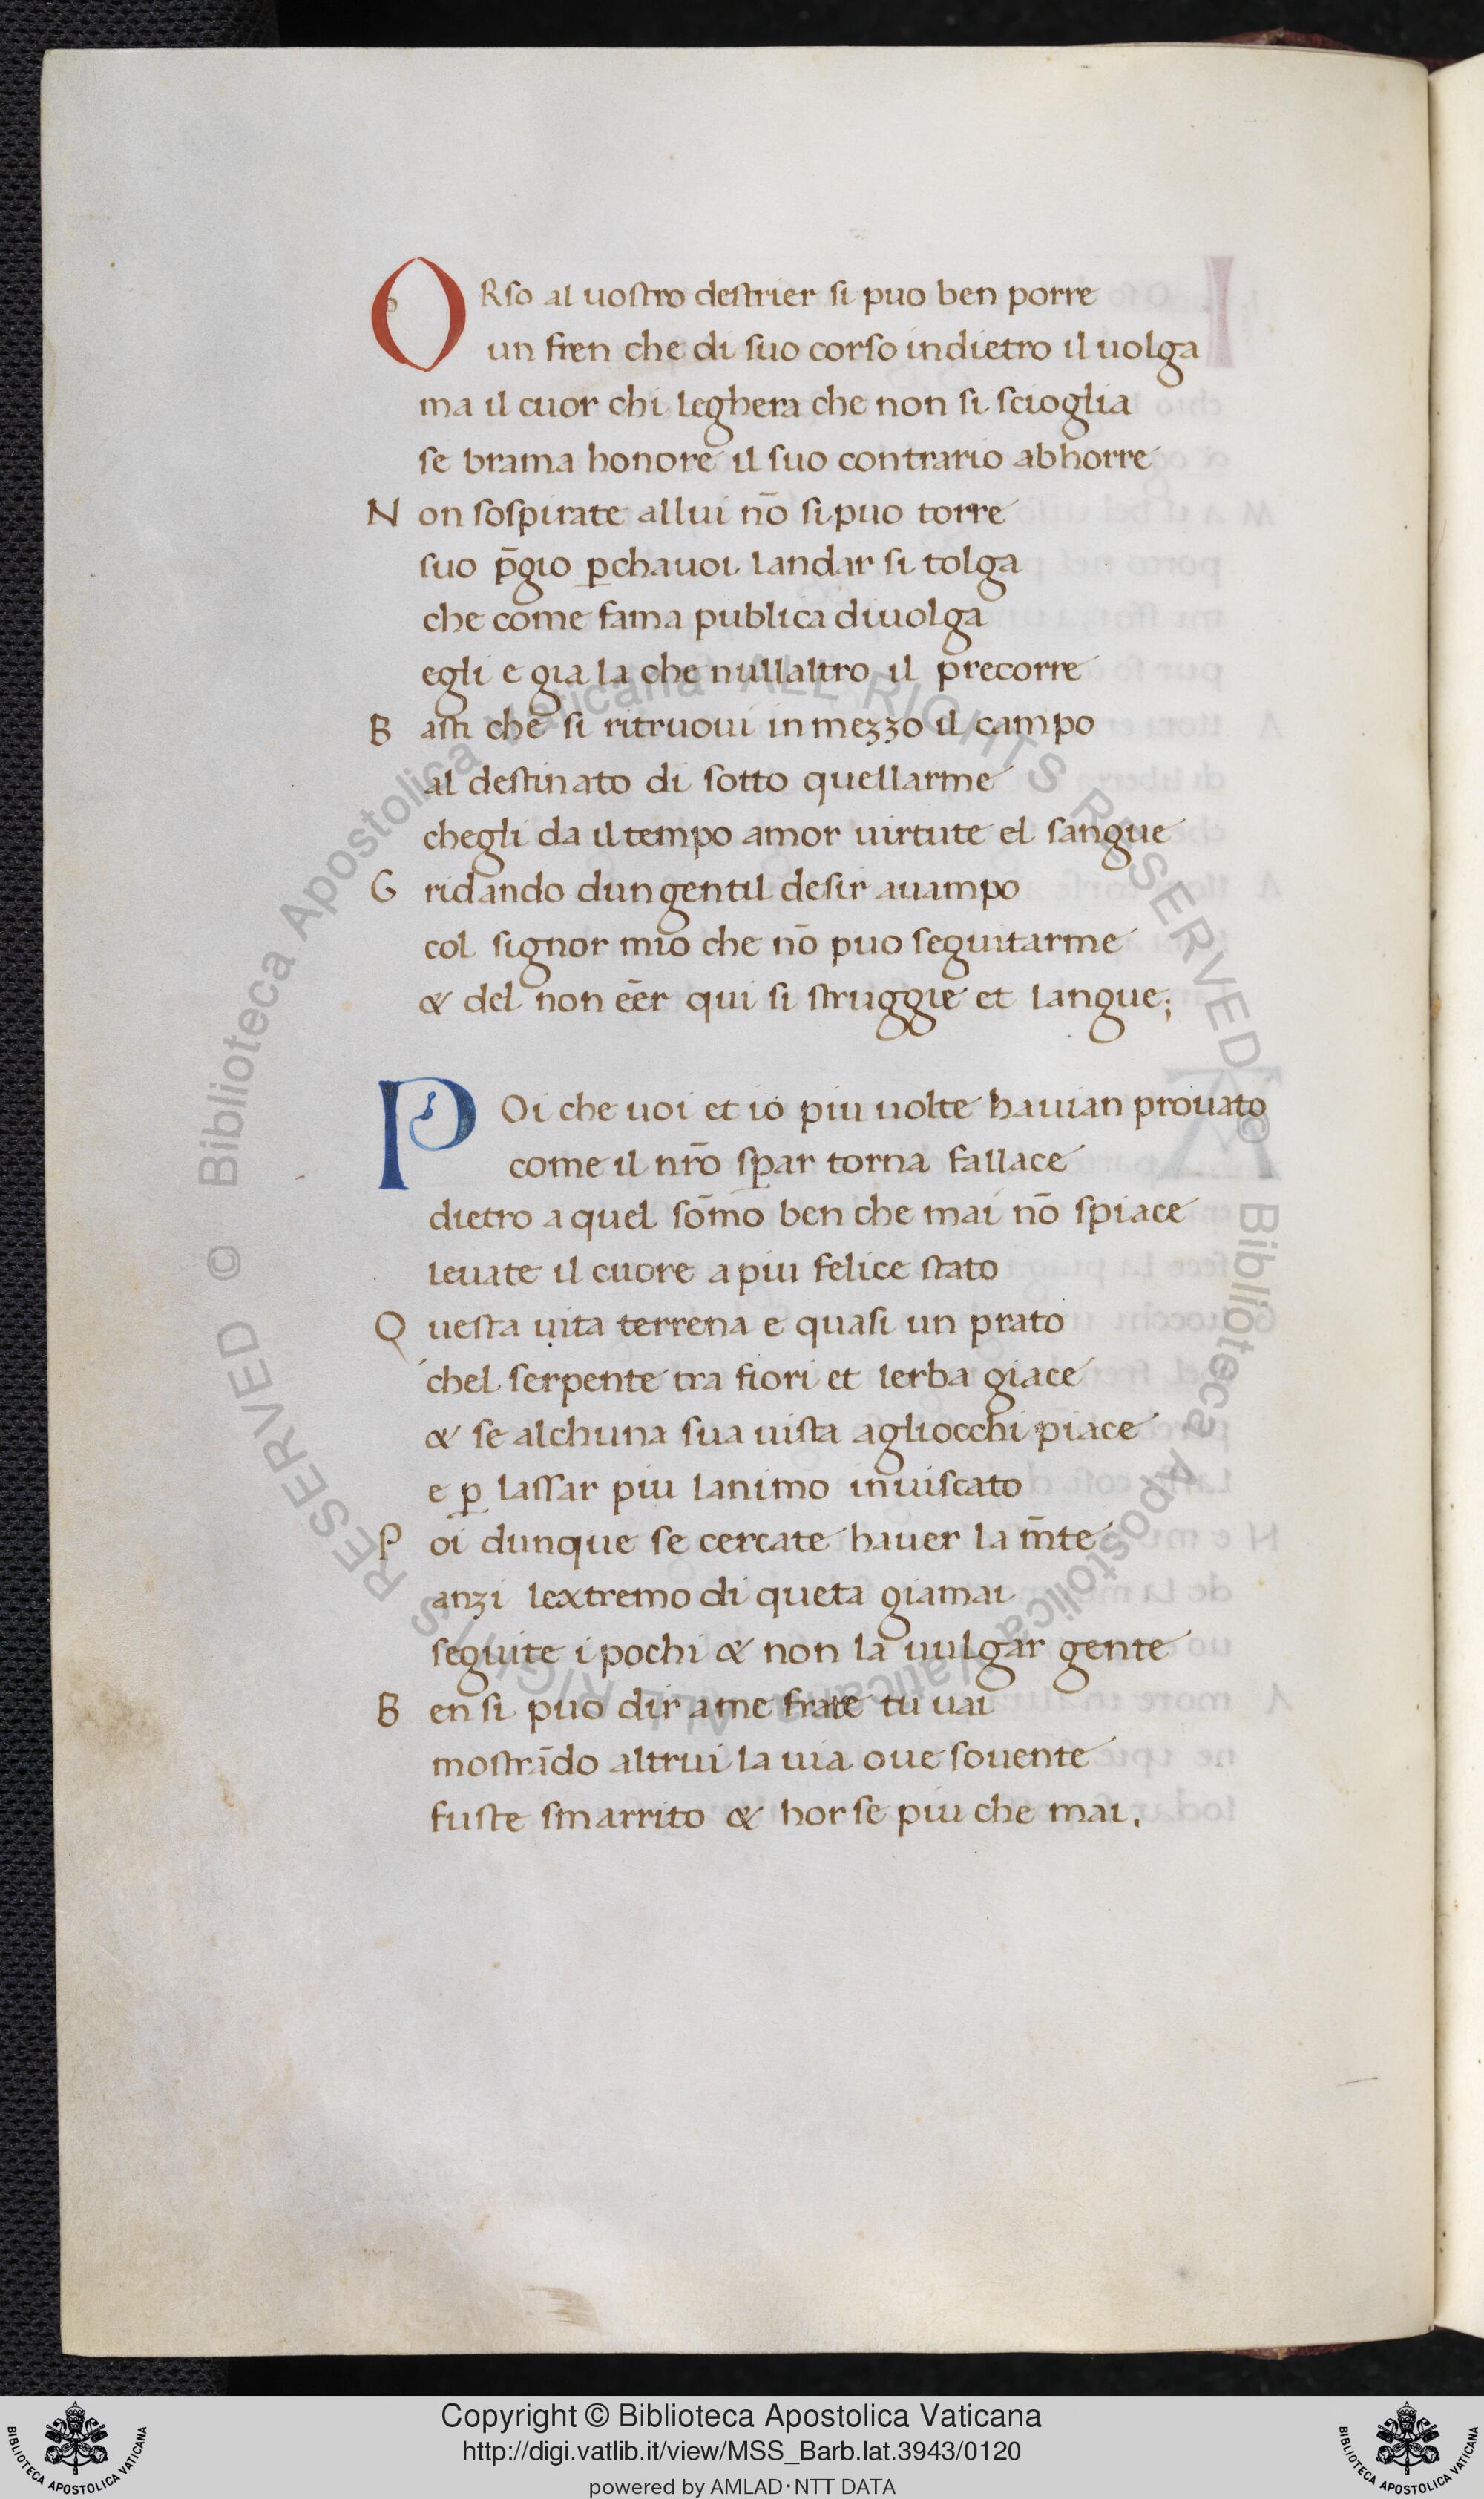 ORso al uostro destrier si puo ben porre
un fren che di suo corso indietro il uolga
ma il cuor chi leghera che non si scioglia
se brama honore il suo contrario abhorre
Non sospirate allui nō si puo torre
suo p̄gio ꝑchauoi landar si tolga
che come fama publica diuolga
egli e gia la che nullaltro il precorre
Basti che si ritruoui in mezzo il campo
al destinato di sotto quellarme
chegli da il tempo amor uirtute el sangue
Gridando dun gentil desir auampo
col signor mio che nō puo seguitarme
& del non eēr qui si struggie et langue;
POi che uoi et io piu uolte hauian prouato
come il nr̄o sꝑar torna fallace
dietro a quel som̄o ben che mai nō spiace
leuate il cuore a piu felice stato
Questa uita terrena e quasi un prato
chel serpente tra fiori et lerba giace
& se alchuna sua uista agliocchi piace
e ꝑ lassar piu lanimo inuiscato
Poi dunque se cercate hauer la m̄te
anzi lextremo di queta giamai
seguite i pochi & non la uulgar gente
Ben si puo dir a me frate tu uai
mostrādo altrui la uia oue souente
fuste smarrito & hor se piu che mai.
© Biblioteca Apostolica Vaticana ALL RIGHTS RESERVED
© Biblioteca Apostolica Vaticana ALL RIGHTS RESERVED
Copyright © Biblioteca Apostolica Vaticana
http://digi.vatlib.it/view/MSS_Barb.lat.3943/0120
powered by AMLAD·NTT DATA
BIBLIOTECA APOSTOLICA VATICANA
BIBLIOTECA APOSTOLICA VATICANA